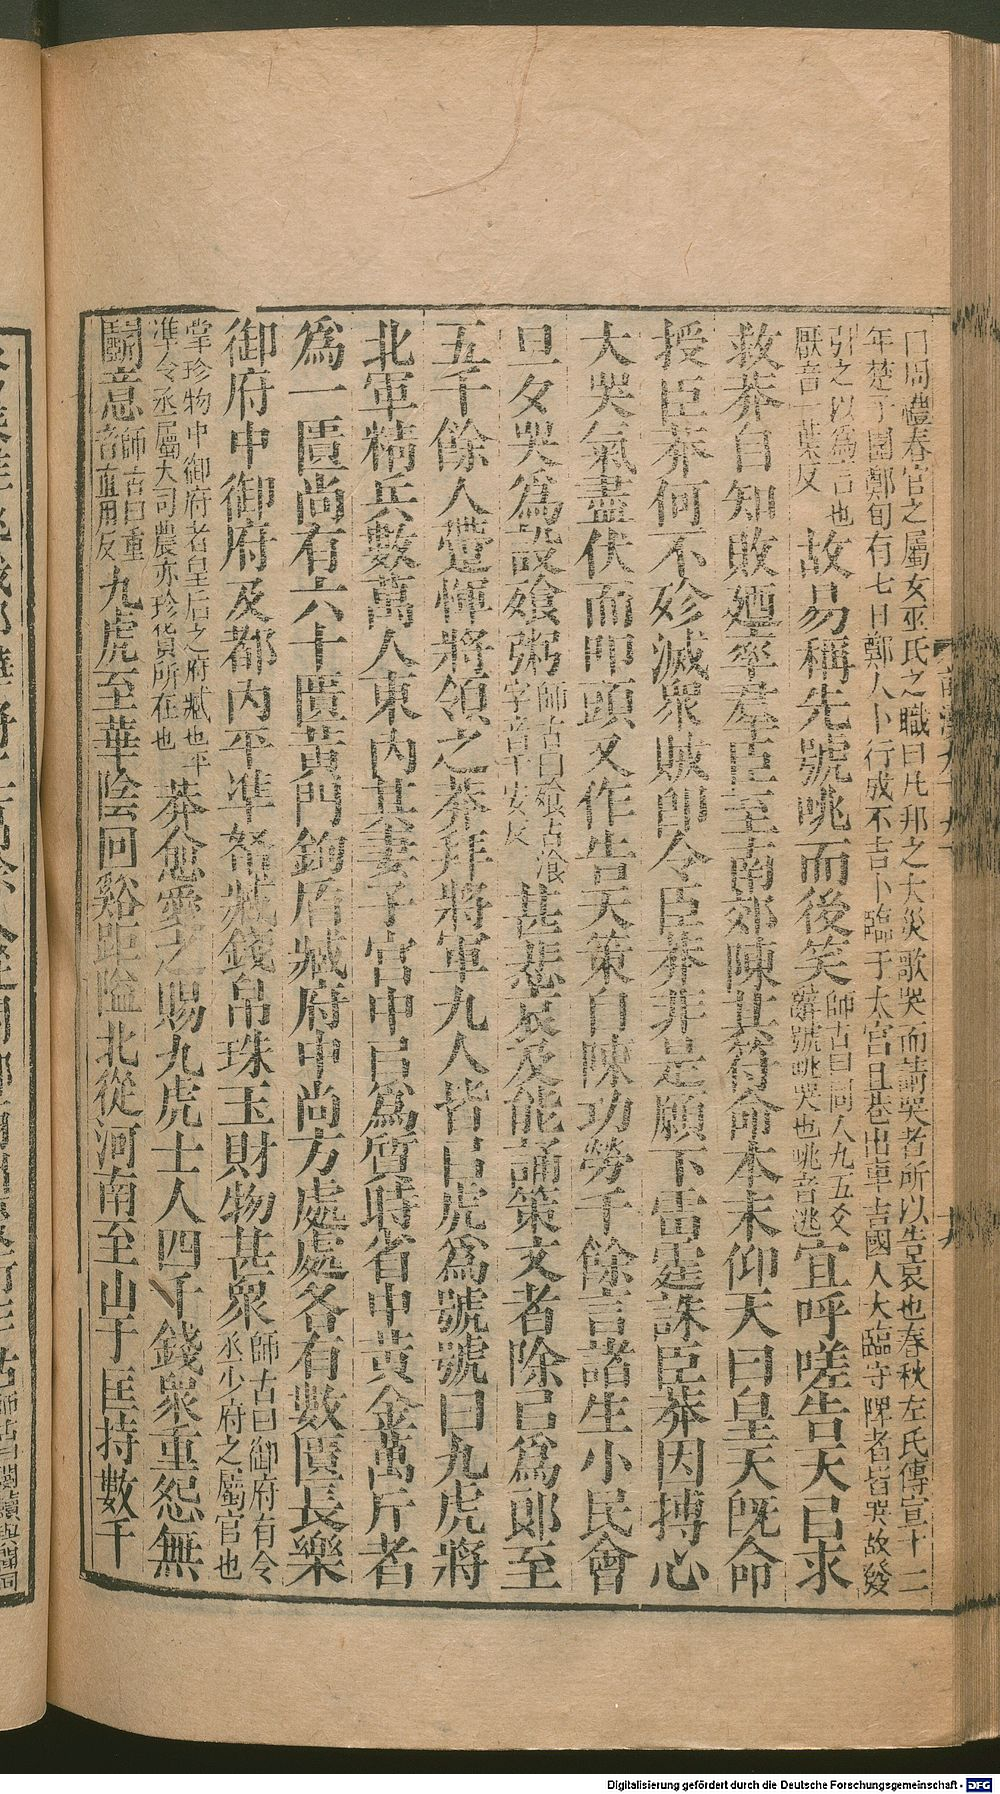 曰周禮春官之屬女巫氏之職曰凡邦之大災歌哭而請哭者所以告哀也春秋左氏傳宣十二
年楚子圍鄭旬有七日鄭人卜行成不吉卜臨于太宮且巷出車吉國人大臨守陴者皆哭故發
引之以為言也
厭音一葉反
故易稱先號咷而後笑
師古曰同人九五爻
辭號咷哭也咷音逃
宜呼嗟告天㠯求
救莽自知敗廼率羣臣至南郊陳其符命本末仰天曰皇天旣命
授臣莽何不殄滅衆賊卽令臣莽非是願下雷霆誅臣莽因搏心
大哭氣盡伏而叩頭又作告天策自陳功勞千餘言諸生小民會
旦夕哭爲設飧粥
師古曰飧古湌
字音千安反
甚悲哀及能誦策文者除㠯爲郎至
五千餘人䠠惲將領之莽拜將軍九人皆㠯虎爲號號曰九虎將
北軍精兵數萬人東內其妻子宮中㠯爲質時省中黃金萬斤者
爲一匱尚有六十匱黃門鉤盾臧府中尚方處處各有數匱長樂
御府中御府及都內平準帑臧錢帛珠玉財物甚衆
師古曰御府有令
丞少府之屬官也
掌珍物中御府者皇后之府臧也平
準令丞屬大司農亦珍貨所在也
莽愈愛之賜九虎士人四千錢衆重怨無
鬭意
師古曰重
音直用反
九虎至華陰回谿距隘北從河南至山于匡持數千
十九
Digitalisierung gefördert durch die Deutsche Forschungsgemeinschaft - DFG